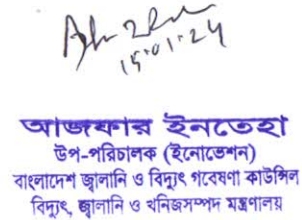 15.01.24
আজফার ইনতেহা
উপ-পরিচালক (ইনোভেশন)
বাংলাদেশ জ্বালানি ও বিদ্যুৎ গবেষণা কাউন্সিল
বিদ্যুৎ, জ্বালানি ও খনিজসম্পদ মন্ত্রণালয়